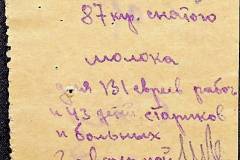 87 кгр. снятого
молока
для 131 евреев рабоч.
и 43 детей стариков
и больных